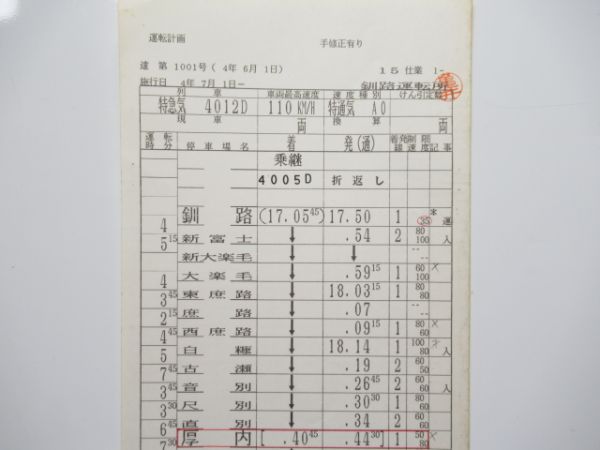 運転計画
手修正有り
達 第 1001号( 4年 6月 1日)
15 仕業 1-
施行日 4年 7月 1日-
釧路運転所
列 車 車両最高速度 速度種別 けん引定数
特急気 4012D 110KM/H 特通気 A0
現車 両 換算 両
運転時分 停車場名 着 発(通) 着発線 制限速度 記事
乗継
4005D 折返し
釧路 (17.05 45) 17.50 1 35 運
4
新富士 ↓ .54 2 80 100 入
5 15
新大楽毛 ↓ ↓ -- --
大楽毛 ↓ .59 15 1 60 100 ×
4
東庶路 ↓ 18.03 15 1 80 100
3 45
庶路 ↓ .07 -- --
2 15
西庶路 ↓ .09 15 1 60 80 ×
4 45
白糠 ↓ 18.14 1 100 80 入
5
古瀬 ↓ .19 2 60
7 45
音別 ↓ .26 45 2 60
3 45
尺別 ↓ .30 30 1 80
3 30
直別 ↓ .34 2 60
6 45
厚内 [ .40 45 .44 30] 1 50 80 ×
7 30